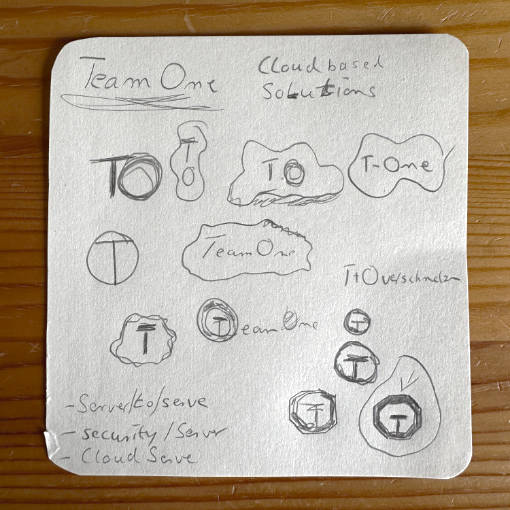 Team One
Cloud based
Solutions
TO
TO
TO
T-One
T
Team One
T+O verschmelzen
T
Team One
T
T
T
T
- Server/to/serve
- security/Server
- Cloud Serve